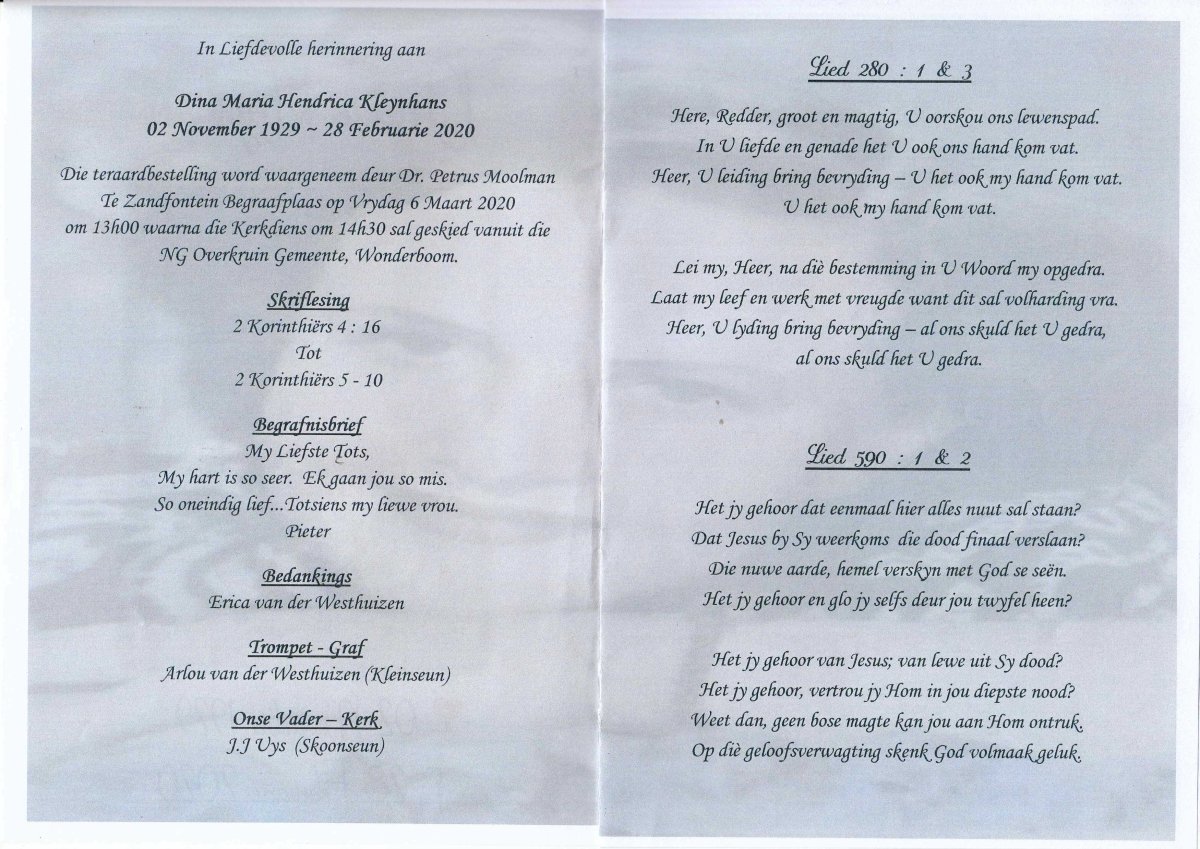 In Liefdevolle herinnering aan
Dina Maria Hendrica Kleynhans
02 November 1929 ~ 28 Februarie 2020
Die teraardbestelling word waargeneem deur Dr. Petrus Moolman
Te Zandfontein Begraafplaas op Vrydag 6 Maart 2020
om 13h00 waarna die Kerkdiens om 14h30 sal geskied vanuit die
NG Overkruin Gemeente, Wonderboom.
Skriflesing
2 Korinthiërs 4 : 16
Tot
2 Korinthiërs 5 - 10
Begrafnisbrief
My Liefste Tots,
My hart is so seer. Ek gaan jou so mis.
So oneindig lief...Totsiens my liewe vrou.
Pieter
Bedankings
Erica van der Westhuizen
Trompet - Graf
Arlou van der Westhuizen (Kleinseun)
Onse Vader – Kerk
J.J Uys (Skoonseun)
Lied 280 : 1 & 3
Here, Redder, groot en magtig, U oorskou ons lewenspad.
In U liefde en genade het U ook ons hand kom vat.
Heer, U leiding bring bevryding – U het ook my hand kom vat.
U het ook my hand kom vat.
Lei my, Heer, na diè bestemming in U Woord my opgedra.
Laat my leef en werk met vreugde want dit sal volharding vra.
Heer, U lyding bring bevryding – al ons skuld het U gedra,
al ons skuld het U gedra.
Lied 590 : 1 & 2
Het jy gehoor dat eenmaal hier alles nuut sal staan?
Dat Jesus by Sy weerkoms die dood finaal verslaan?
Die nuwe aarde, hemel verskyn met God se seën.
Het jy gehoor en glo jy selfs deur jou twyfel heen?
Het jy gehoor van Jesus; van lewe uit Sy dood?
Het jy gehoor, vertrou jy Hom in jou diepste nood?
Weet dan, geen bose magte kan jou aan Hom ontruk.
Op diè geloofsverwagting skenk God volmaak geluk.